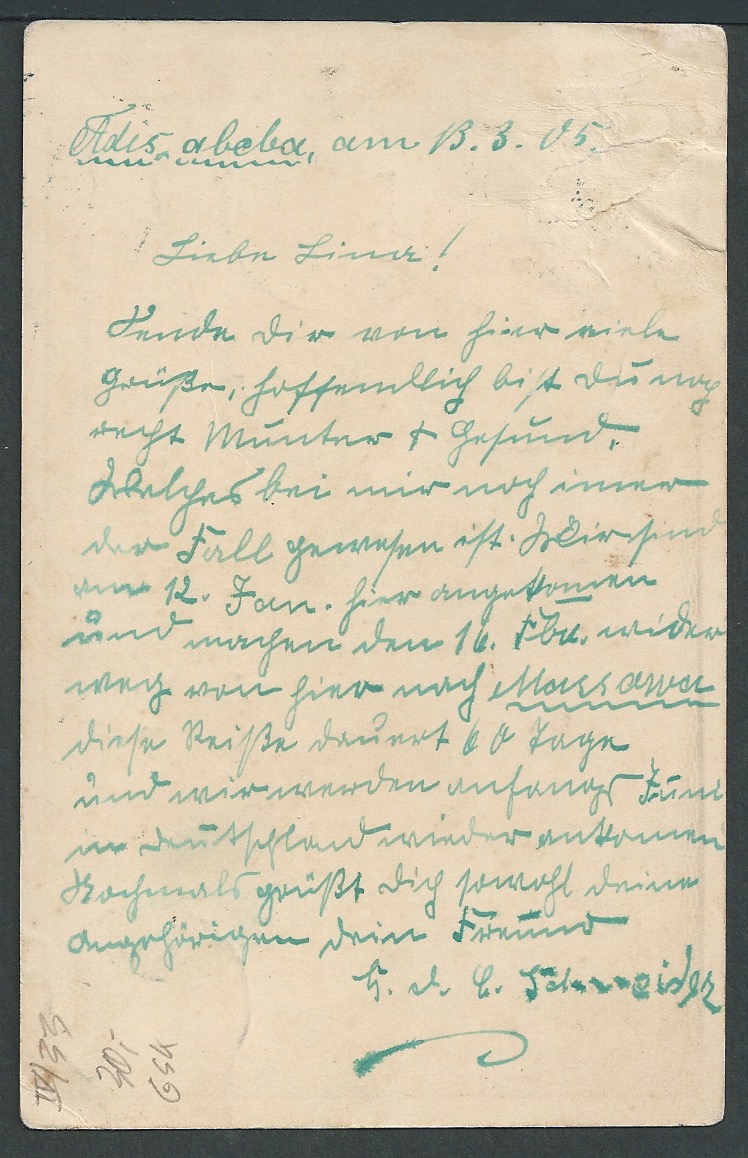 Adis abeba, am 13. 3. 05.
Liebe Lina!
Sende dir von hier viele
Grüße, hoffendlich bist du noch
recht Munter & Gesund,
Welches bei mir noch imer
der Fall gewesen ist. Wir sind
am 12. Jan. hier angekomen
und machen den 16. Fbu. wider
weg von hier nach Massawa
diese Reiße dauert 60 Tage
und wir werden anfangs Juni
in Deutschland wieder ankomen
Nochmals grüßt dich sowohl deine
Angehörigen dein Freund
Schneider